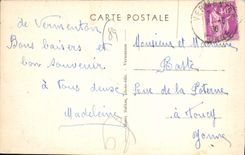 CARTE POSTALE
de Vermenton
Bons baisers et
bon souvenir
à tous deux
Madeleine
89
Monsieur et Madame
Rue de la Poterne
à Toucy
Yonne